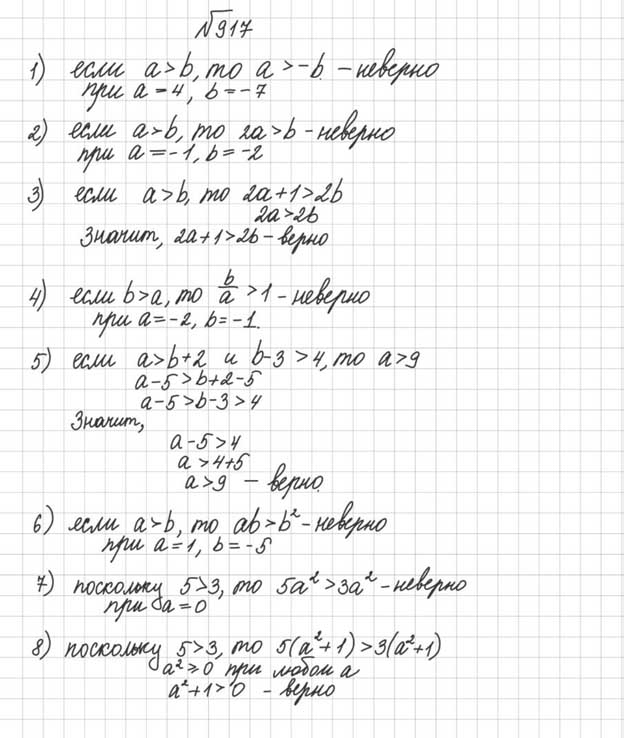 №917
1) если a > b, то a > -b. - неверно
при a = 4, b = -7
2) если a > b, то 2a > b - неверно
при a = -1, b = -2
3) если a > b, то 2a + 1 > 2b
2a > 2b
Значит, 2a + 1 > 2b - верно
4) если b > a, то b/a > 1 - неверно
при a = -2, b = -1.
5) если a > b + 2 и b - 3 > 4, то a > 9
a - 5 > b + 2 - 5
a - 5 > b - 3 > 4
Значит,
a - 5 > 4
a > 4 + 5
a > 9 - верно.
6) если a > b, то ab > b² - неверно
при a = 1, b = -5
7) поскольку 5 > 3, то 5a² > 3a² - неверно
при a = 0
8) поскольку 5 > 3, то 5(a² + 1) > 3(a² + 1)
a² ⩾ 0 при любом a
a² + 1 > 0 - верно